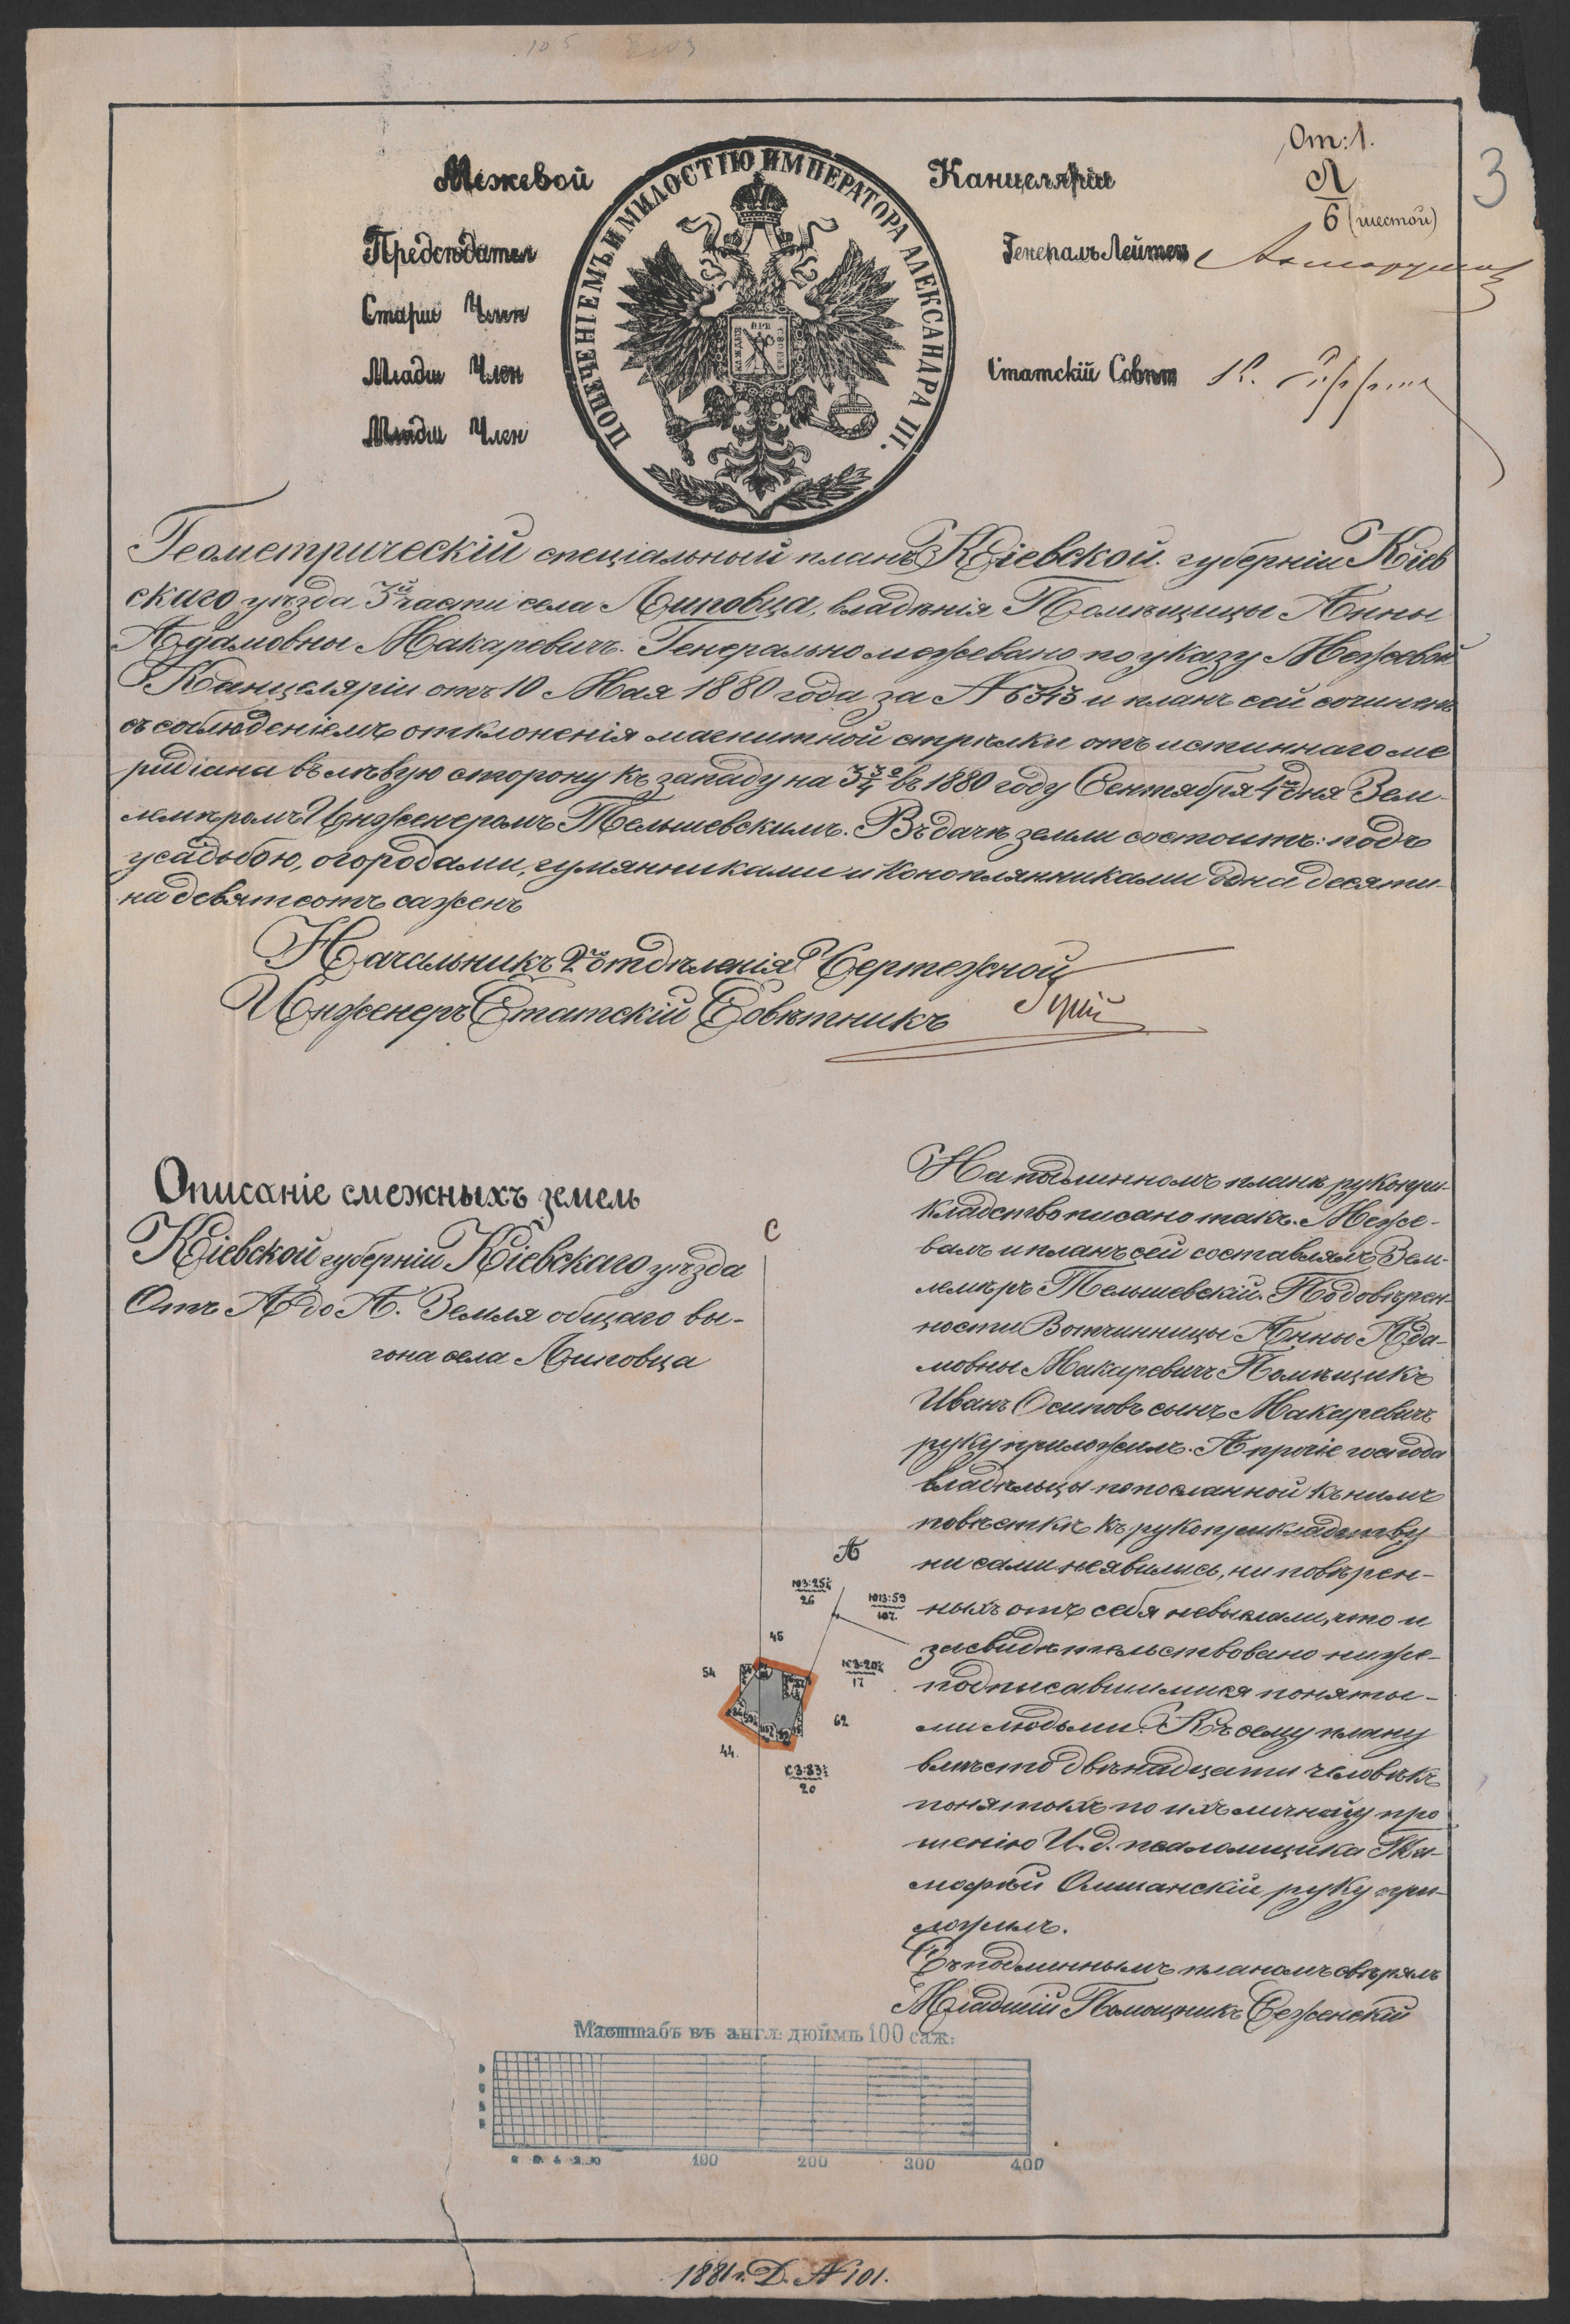 От: 1.
Л
6 (шестой)
3
Межевой Канцеляріи
ПОПЕЧЕНІЕМЪ И МИЛОСТІЮ ИМПЕРАТОРА АЛЕКСАНДРА III.
Предсѣдател
Генералъ Лейтен
Старш Член
Младш Член
Статскій Совѣт
Младш Член
Геометрическій спеціальный планъ Кіевской губерніи Кіев
скаго уѣзда 3й части села Липовца, владѣнія Помѣщицы Анны
Адамовны Макаревичъ. Генерально межевано по указу Межевой
Канцеляріи отъ 10 Мая 1880 года за № 6343 и планъ сей сочиненъ
съ соблюденіемъ отклоненія магнитной стрѣлки отъ истиннаго ме
ридіана въ лѣвую сторону къ западу на 3 3/4° въ 1880 году Сентября 4го дня Зем-
лемѣромъ Инженеромъ Тельшевскимъ. Въ дачѣ земли состоитъ: подъ
усадьбою, огородами, гумянниками и конопляниками одна десяти-
на девятсотъ саженъ
Начальникъ 2го отдѣленія Чертежной
Инженеръ Статскій Совѣтникъ
Описаніе смежныхъ земель
Кіевской губерніи Кіевскаго уѣзда
Отъ А до А. Земля общаго вы-
гона села Липовца
С
На подлинномъ планѣ рукопри-
кладство писано такъ. Меже-
валъ и планъ сей составлялъ Зем-
лемѣръ Тельшевскій. По довѣрен-
ности Вотчинницы Анны Ада-
мовны Макаревичъ Помѣщикъ
Иванъ Осиповъ сынъ Макаревичъ
руку приложилъ. А прочіе господа
владѣльцы по посланной къ нимъ
повѣсткѣ къ рукоприкладству
ни сами неявились, ни повѣрен-
ныхъ отъ себя невыслали, что и
засвидѣтельствовано ниже-
подписавшимися поняты-
ми людьми. Къ сему плану
вмѣсто двѣнадцати человѣкъ
понятыхъ по ихъ личному про
шенію И. д. псаломщика Ти-
мофѣй Ольшанскій руку при-
ложилъ.
Съ подлиннымъ планомъ свѣрялъ
Младшій Помощникъ Сеженскій
А
ЮЗ:25¼
26
ЮВ:59
107
45
54
ЮЗ:20¼
17
62
44.
СЗ:83½
20
Масштабъ въ англ: дюймѣ 100 саж:
100 200 300 400
1881 г. Д. № 101.